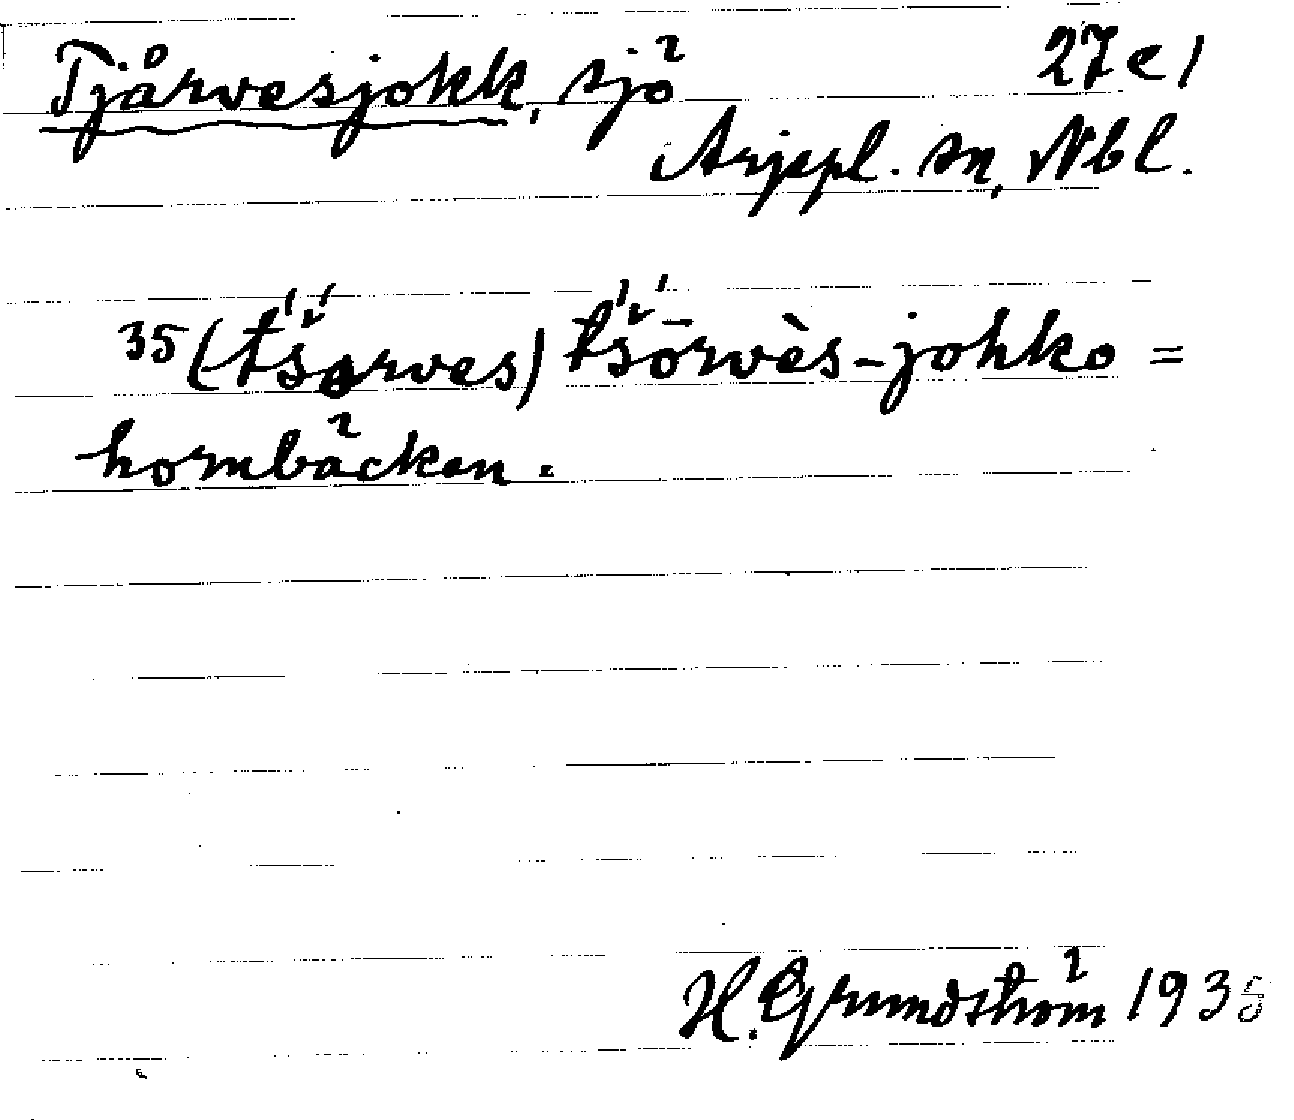 Tjårvesjokk, sjö 27 e 1
Arjepl. sn, Nbl.
35 (tš́årves) tš́ōrvès-johko =
hornbäcken.
H. Grundström 1935